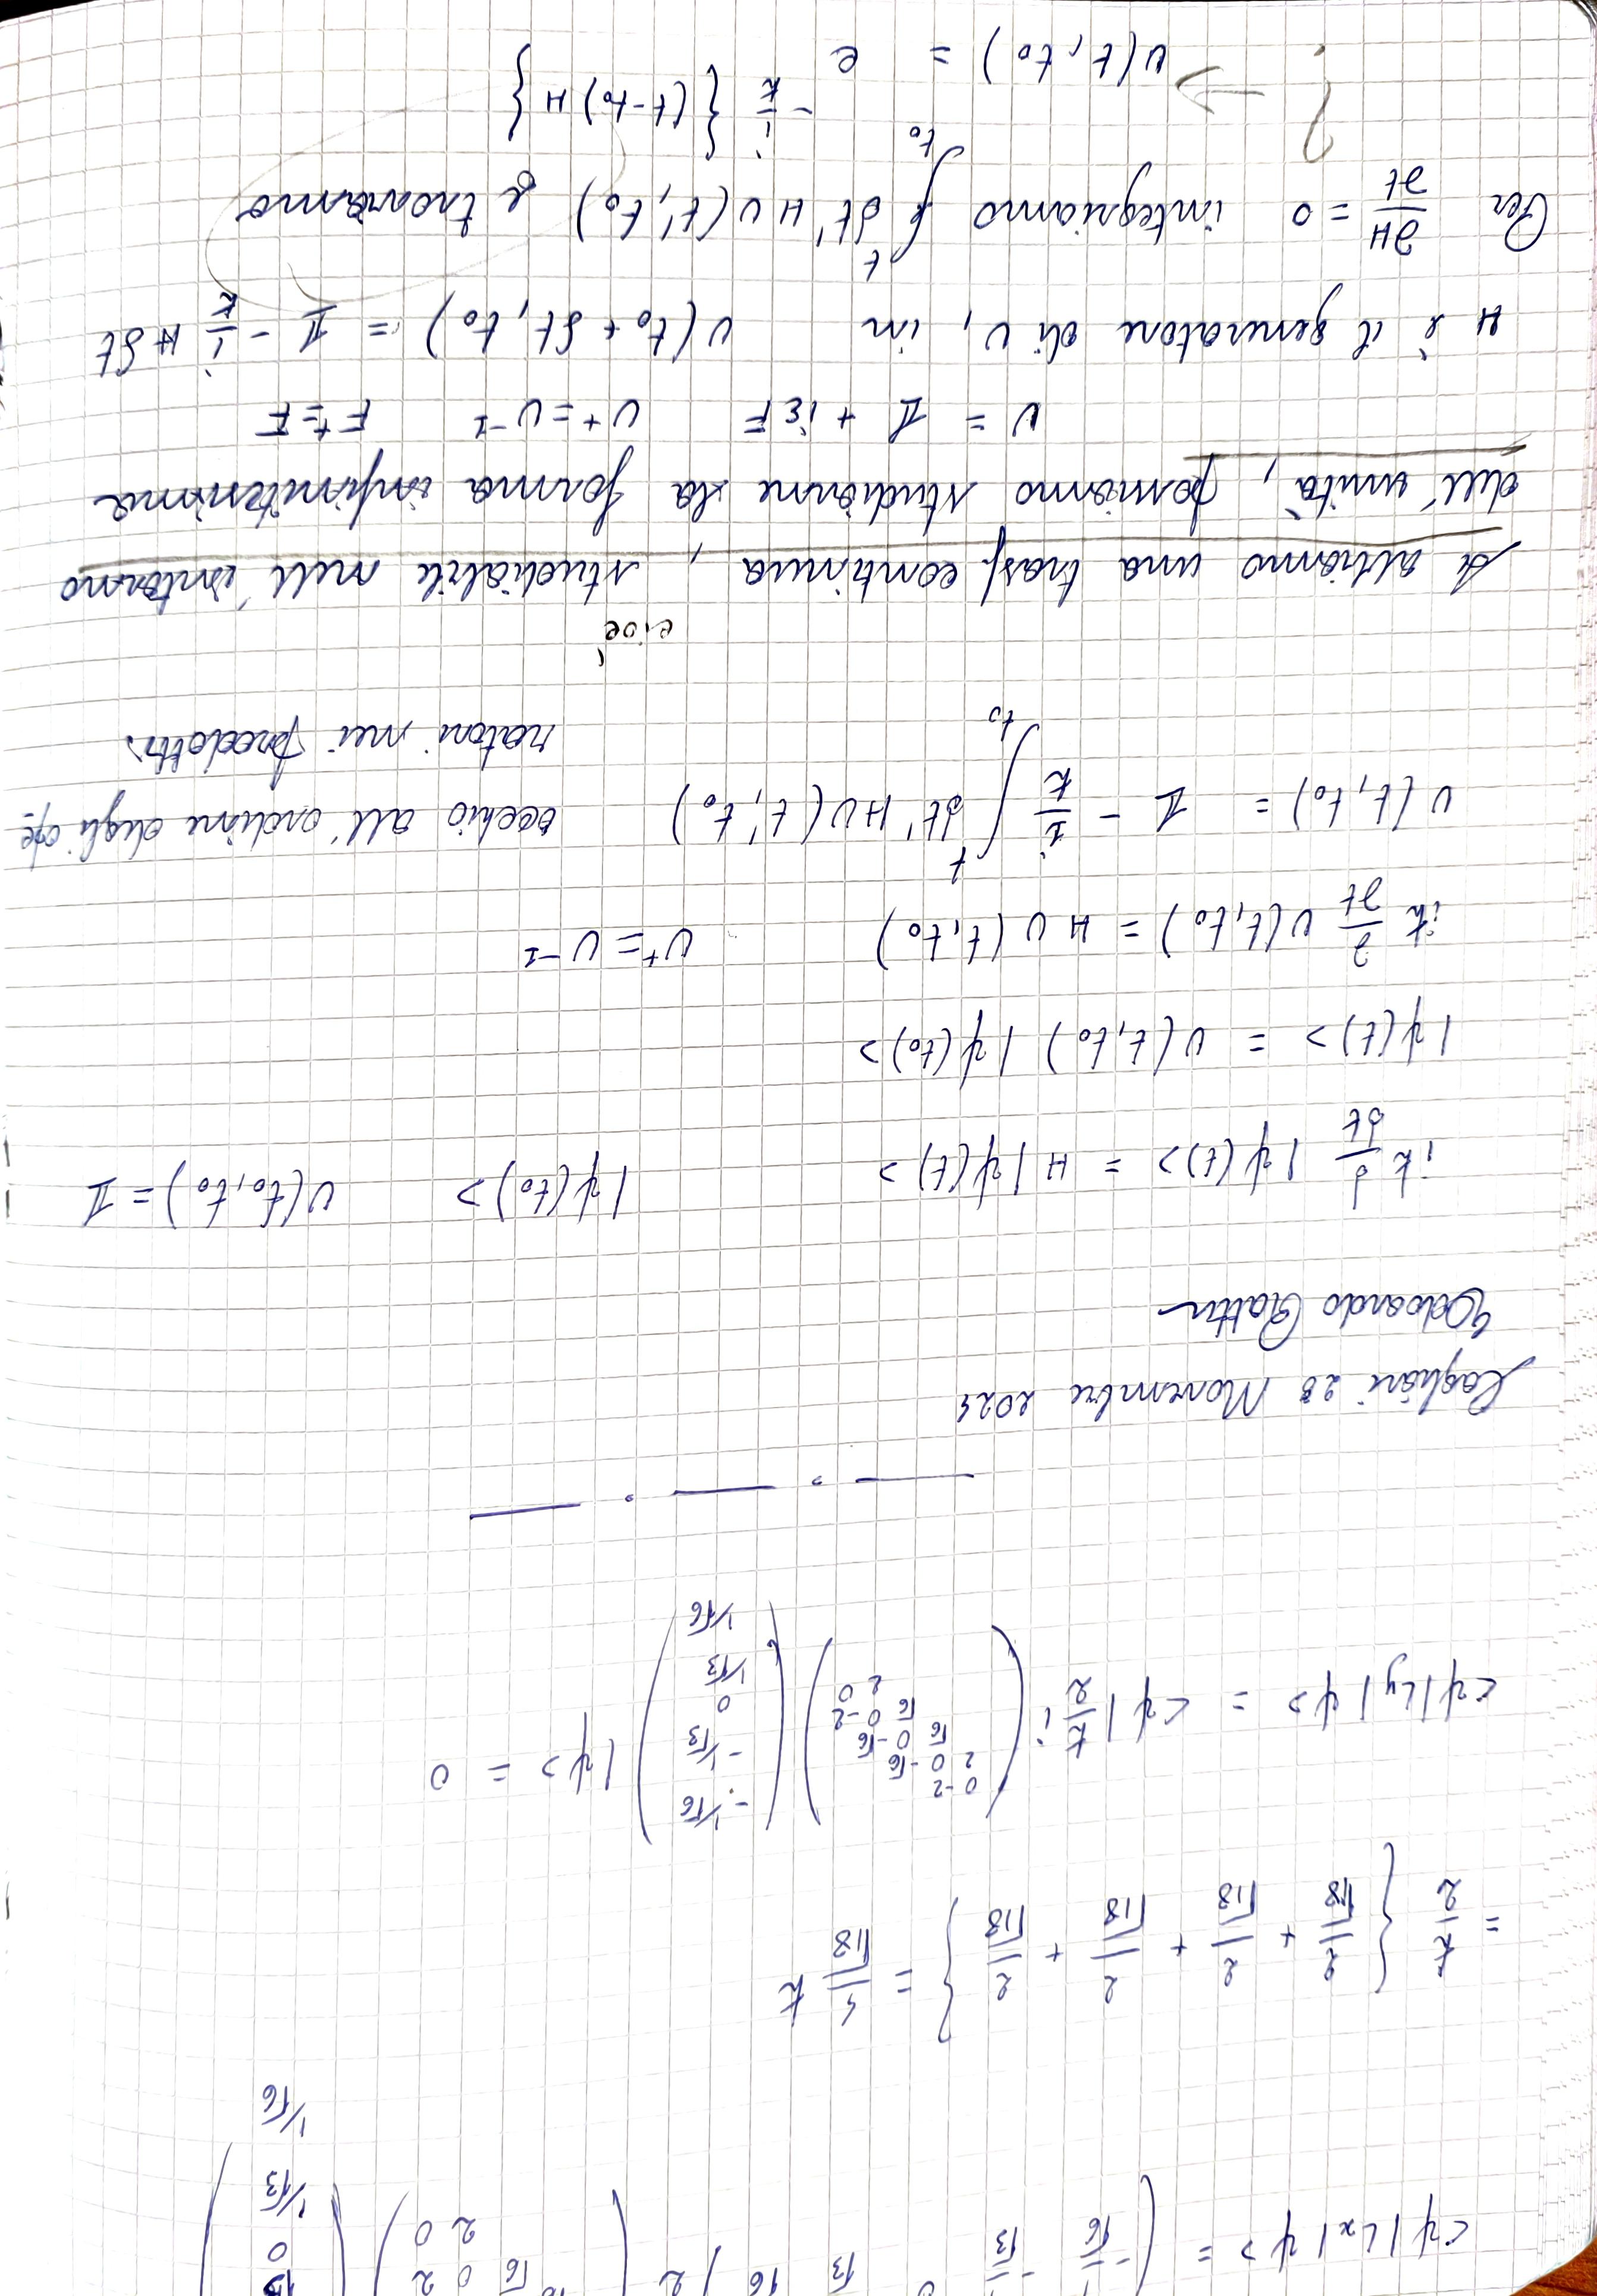 <ψ|Lx|ψ> = ( -1/√6 -1/√3 0 1/√3 1/√6 ) ħ/2 ( √6 0 2 / 2 0 ) ( 0 1/√3 1/√6 )
= ħ/2 { 2/√18 + 2/√18 + 2/√18 + 2/√18 } = 4/√18 ħ
<ψ|Ly|ψ> = <ψ| ħ/2 i ( 0 -2 / 2 0 -√6 / √6 0 -√6 / √6 0 -2 / 2 0 ) ( -1/√6 -1/√3 0 1/√3 1/√6 ) |ψ> = 0
Cagliari 28 Novembre 2024
Edoardo
iħ d/dt |ψ(t)> = H |ψ(t)> |ψ(t₀)> U(t₀,t₀) = 𝟙
|ψ(t)> = U(t,t₀) |ψ(t₀)>
iħ ∂/∂t U(t,t₀) = H U(t,t₀) U⁺ = U⁻¹
U(t,t₀) = 𝟙 - i/ħ ∫_{t₀}^{t} dt' H U(t',t₀) occhio all'ordine degli ope
ratori nei prodotti.
cioè
Se abbiamo una trasf. continua, studiabile nell'intorno
dell'unità, possiamo studiarne la forma infinitesima
U = 𝟙 + iεF U⁺ = U⁻¹ F⁺ = F
H è il generatore di U, in U(t₀ + δt, t₀) = 𝟙 - i/ħ H δt
Per ∂H/∂t = 0 integriamo ∫_{t₀}^{t} dt' H U(t',t₀) e troviamo
? → U(t,t₀) = e^{-i/ħ {(t-t₀) H}}